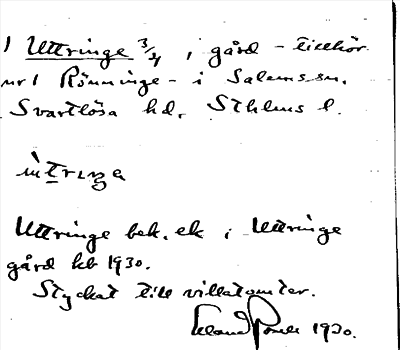 1 Uttringe 3/4, gård - tillhör
nr 1 Rönninge - i Salems sn.
Svartlösa hd. Sthlms l.
ùtrıŋa
Uttringe bek. ek i Uttringe
gård kb 1930.
Styckat till villatomter.
1930.